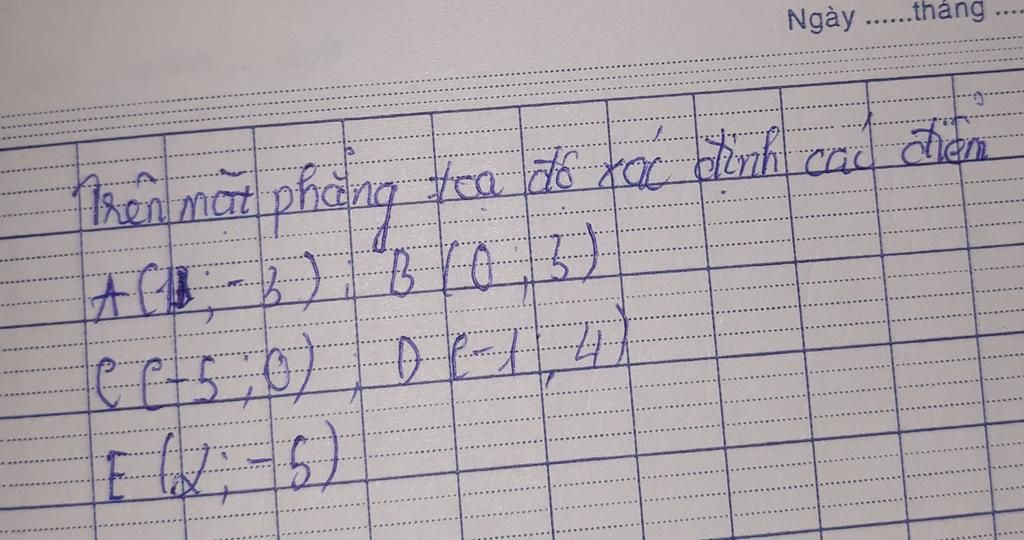 Ngày ......tháng ....
Trên mặt phẳng tọa độ xác định các điểm
A(1; -3); B(0; 3)
C(-5; 0), D(-1; 4)
E(2; -5)